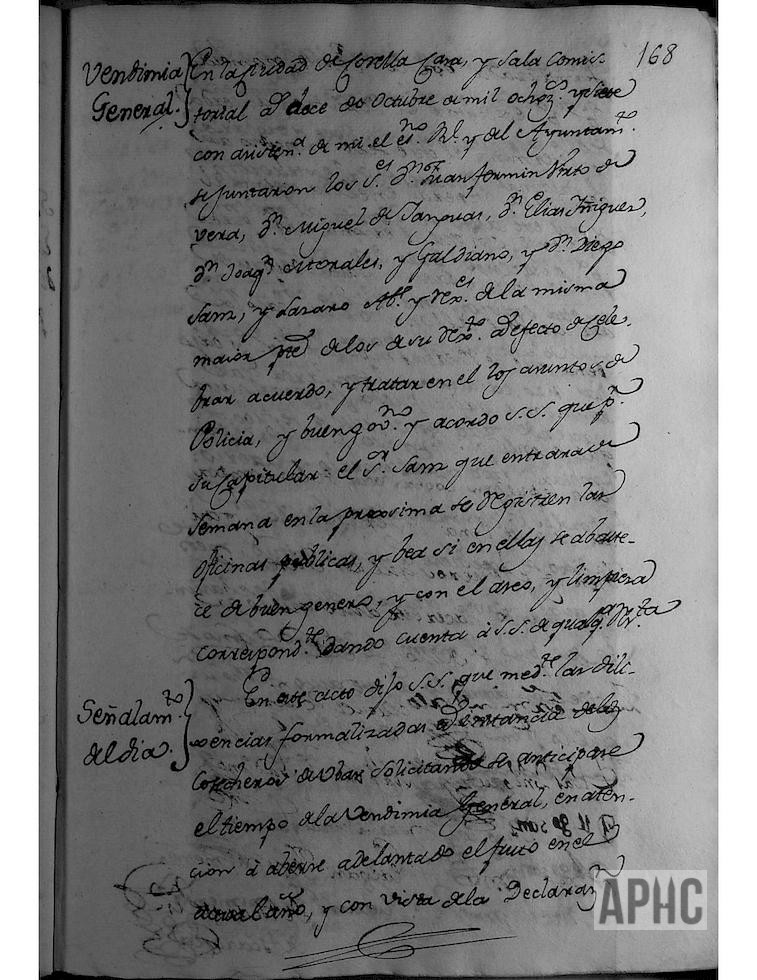 168
Vendimia
General.
En la Ciudad de Corella Casa, y Sala Consis-
torial a doce de Octubre de mil ochoz.s y siete
con asisten.a de mi el es.no R.l y del Ayuntam.to
se juntaron los S.es D.n Juan fermin Virto de
vera, D.n Miguel de Sanguas, D.n Elias Iñiguez,
D.n Joaq.n Morales, y Galdiano, y D.n Diego
Sanz, y Lazaro Alc.e y Rex.es de la misma
maior p.te de los de su Rex.to a efecto de Cele-
brar acuerdo, y tratar en el los asuntos de
Policia, y buen gov.no y acordo S.S. que p.r
su Capitular el S.r Sanz que entrara de
semana en la proxima se Registren las
oficinas publicas, y bea si en ellas se abaste-
ce de buen genero, y con el aseo, y limpieza
correspond.te dando cuenta à S.S. de qualq.a
Señalam.to
del dia.
En este acto dijo S.S. que med.te las dili-
xencias formalizadas a Instancia de los
Cosecheros de Ubas solicitando se anticipase
el tiempo de la Vendimia General, en aten-
cion à aberse adelantado el fruto en el
año, y con vista de la Declaraz.n
APHC